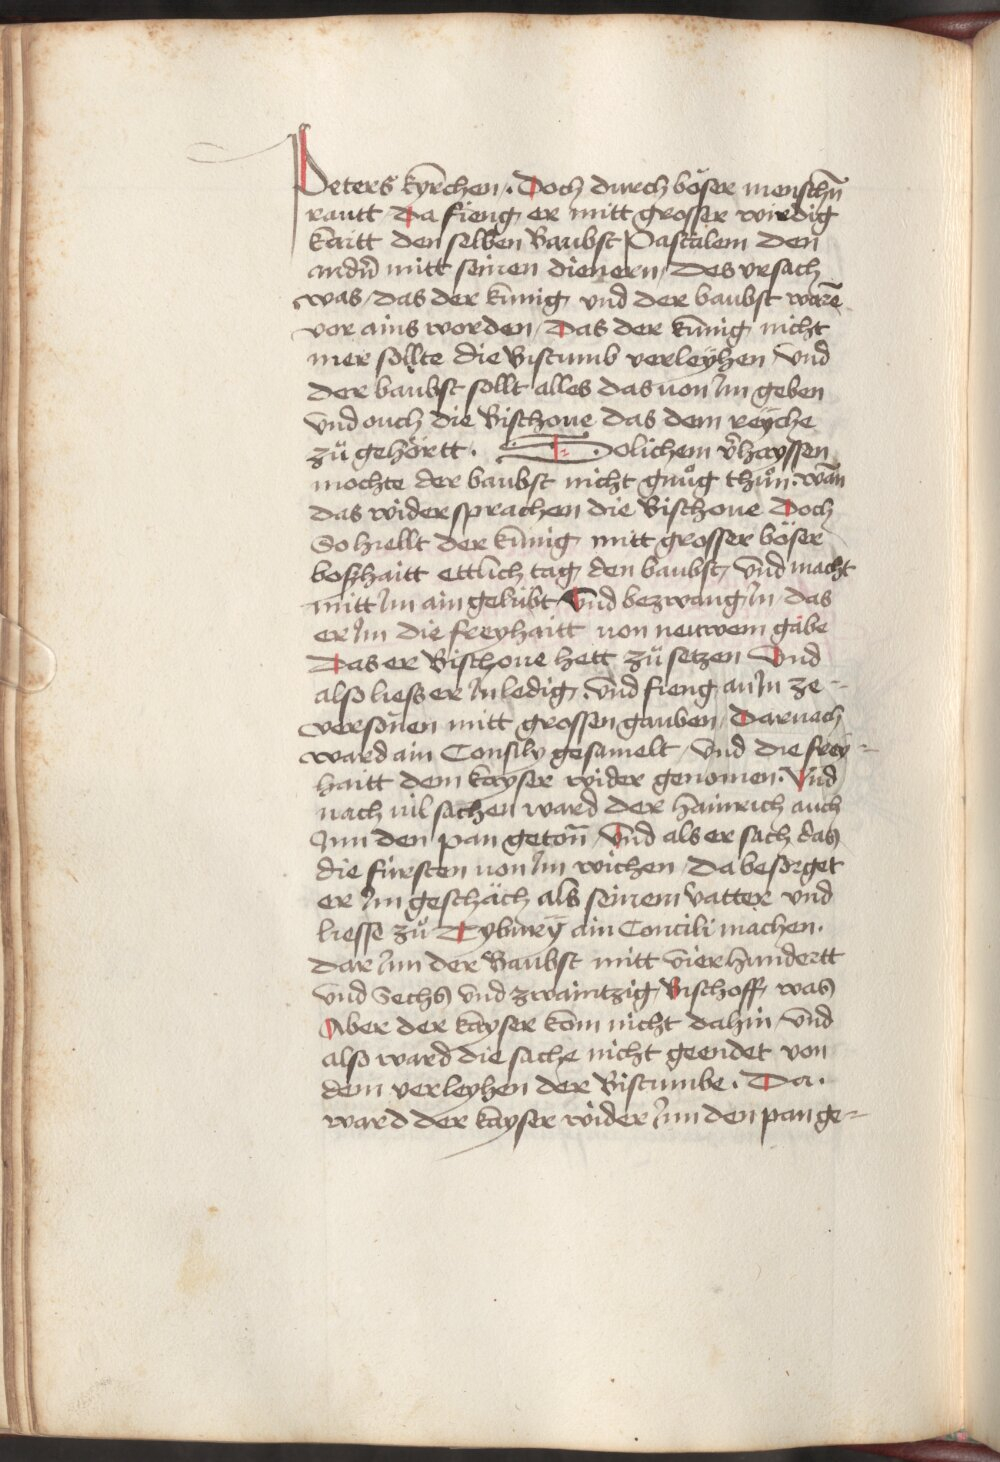 Peters kyrchen. Doch durch böser menschn̄
rautt Da fieng er mitt grosser wirdig
kaitt den selben Baubst Pascalem den
andn̄ mitt seinen dienern, Des vrsach
was, das der künig vnd der baubst warē
vor ains worden, Das der künig nicht
mer sollte die Bistumb verleyhen vnd
der baubst sollt alles das von Jm geben
vnd ouch die Bischoue das dem reyche
zů gehörtt. Solichem v̄hayssen
mochte der baubst nicht gnůg thůn. wān
das widersprachen die Bischoue Doch
So hiellt der künig mitt grosser böser
boßhaitt ettlich tag den baubst, vnd macht
mitt Jm ain gelübt vnd bezwang Jn das
er Jm die freyhaitt von neuwem gäbe
Das er Bischoue hett zů setzen vnd
also liess er Jn ledig. vnd fieng an Jn ze-
versönen mitt grossen gauben, Darnach
ward ain Consily gesamelt, vnd die frey-
haitt dem kayser wider genomen. Vnd
nach vil sachen ward der hainrich auch
Jnn den pan getōn vnd als er sach das
die fürsten von Jm wichen, Da besorget
er Jm geschäch als seinem vatter vnd
liesse zů Tybury ain Concili machen.
Dar Jnn der Baubst mitt vierhundertt
vnd Sechs vnd zwaintzig Bischoff was
Aber der kayser kōm nicht dahin, vnd
also ward die sache nicht geendet von
dem verleyhen der Bistumbe. Da.
ward der kayser wider Jnn den pan ge-